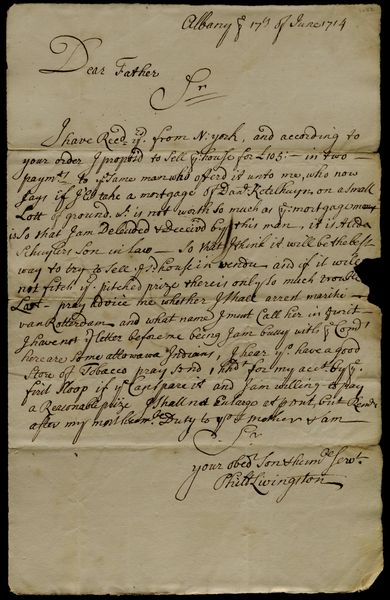 Albany ye 17d of June 1714
Dear Father
Sr
I have Recd yrs. from N: york, and according to
your order I propos'd to Sell ye house for £105:- in two
paymts to ye Same man who offerd it unto me, who now
Says if I'le take a mortgage of Davd Ketelhuyn, on a Small
Lott of ground, wch is not worth So much as ye mortgage money
is So that I am Deluded & deceivd by this man, it is
Schuylers Son in law - So that I think it will be the best
way to try to Sell ye sd house in vendu - and if it will
not fitch ye pitched prize there is only So much trouble
Lost - pray advice me whether I Shall arrest
van Rotterdam and what name I must Call her in ye writ -
I have not yr letter before me being I am bussy with ye
here are Some ottowawa Indians, I hear yu have a good
Store of Tobacco pray Send 1 hhd for my acct by ye
first Sloop if yu Can Spare it and I am willing to pay
a Reasonable prize I Shall not Enlarge at but
after my most humble Duty to yu & mother & am
Sr
your obedt Son & humble Servt.
Phill Livingston